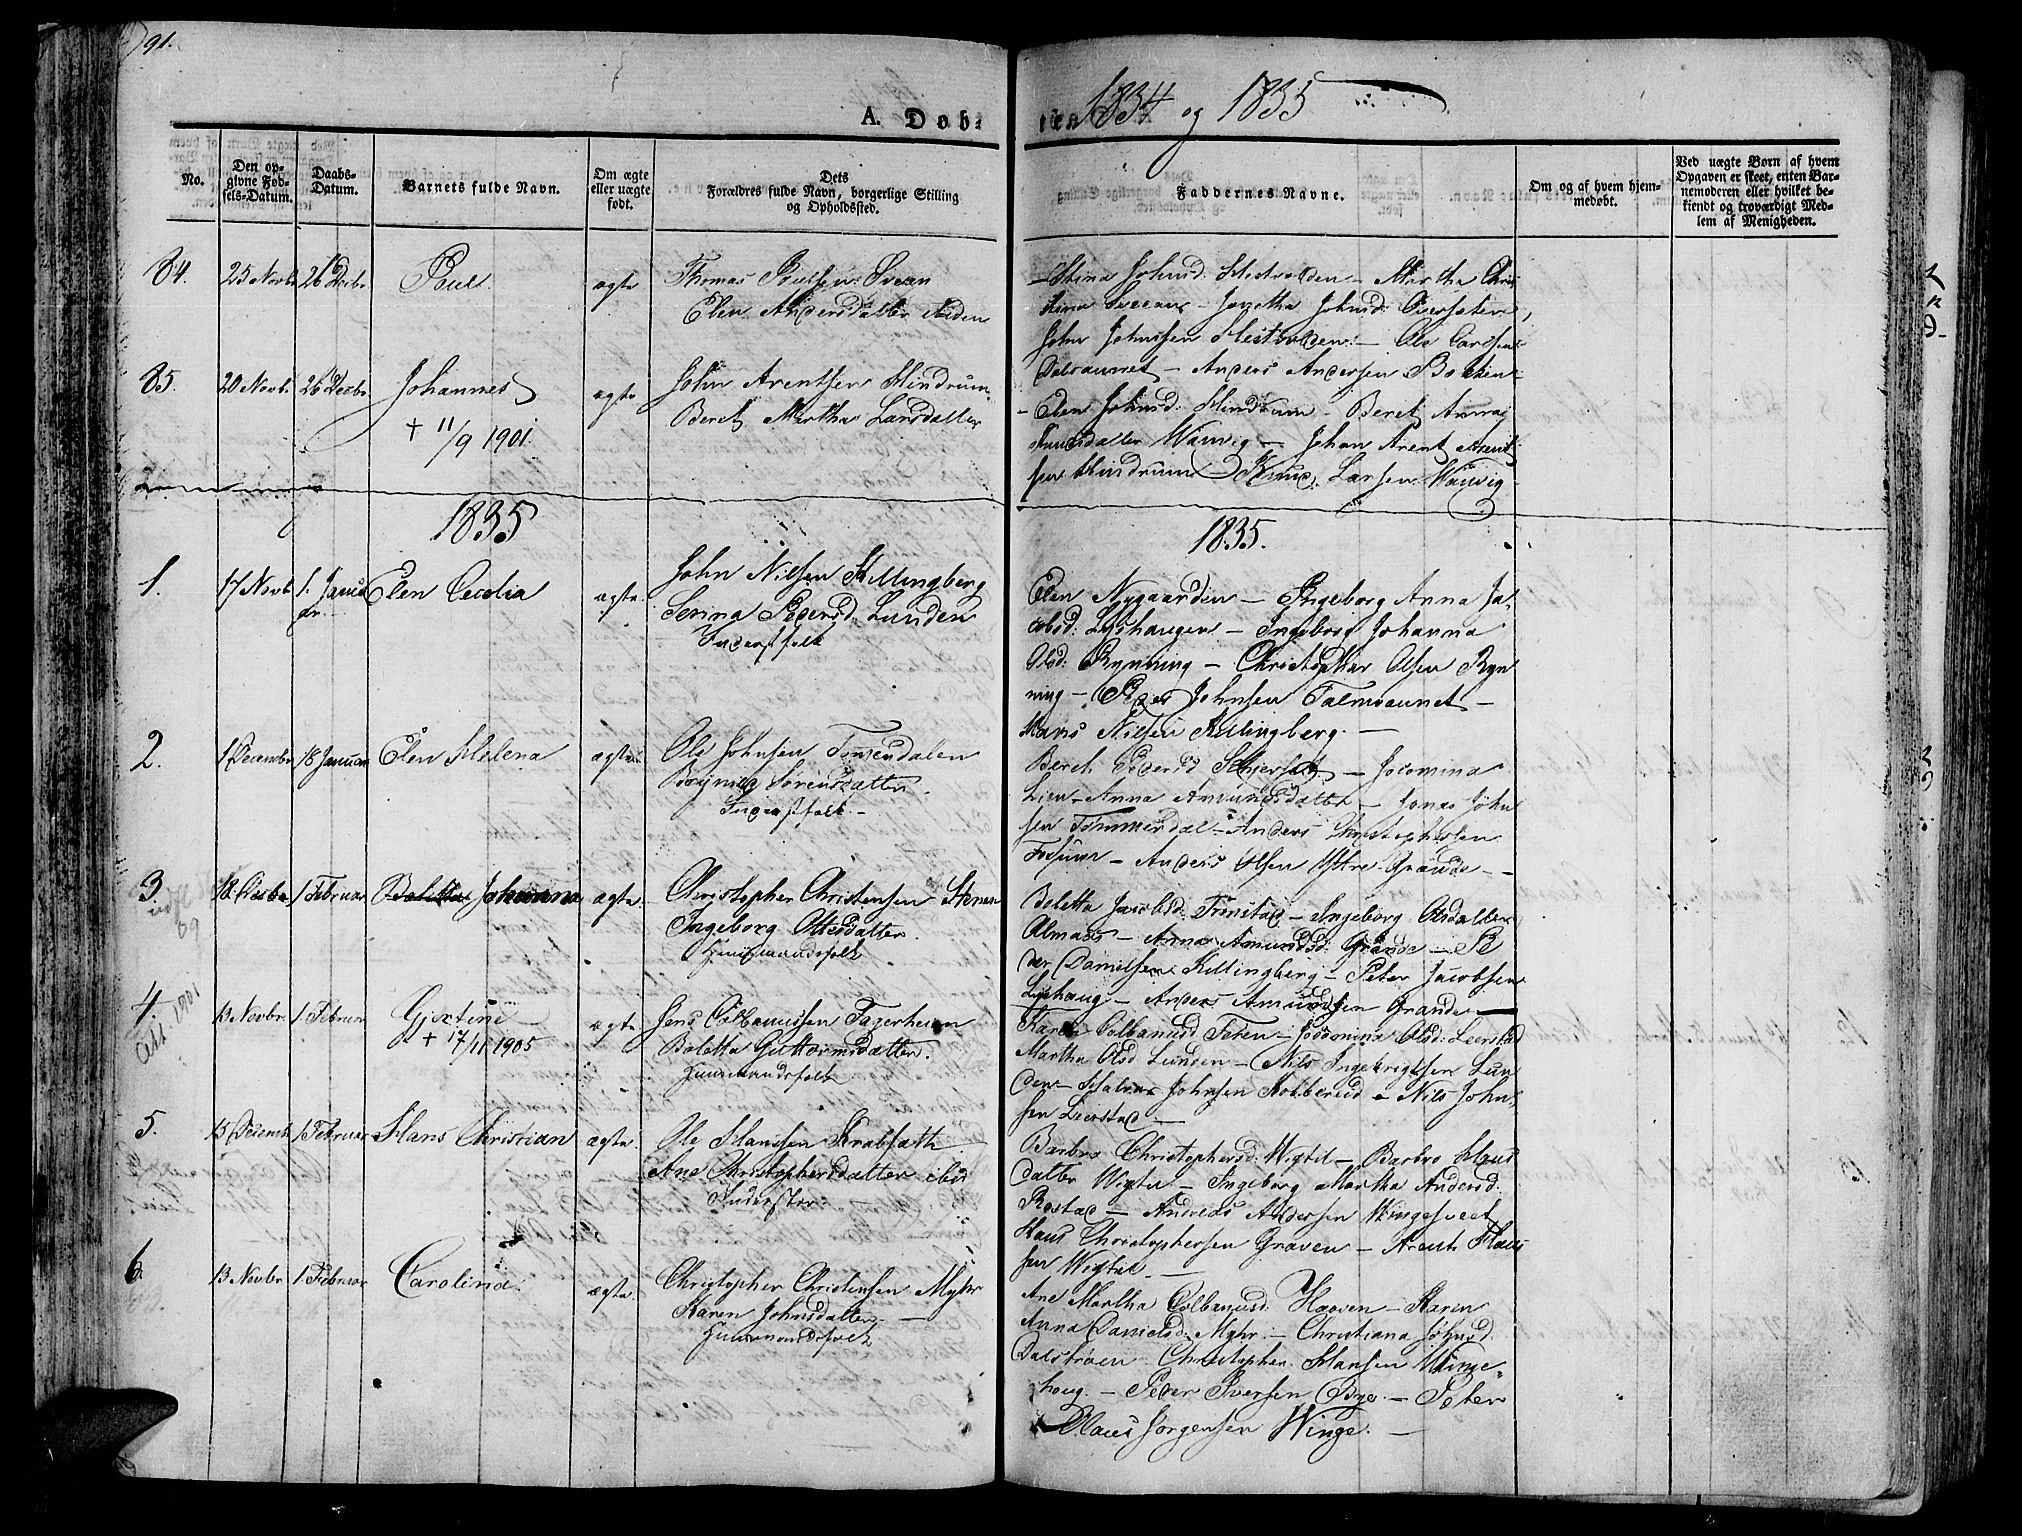 91.
A. Døb-
te 1834 og 1835
No.
Den op-
givne Fød-
sels-Datum.
Daabs-
Datum.
Barnets fulde Navn.
Om ægte
eller uægte
født.
Dets
Forældres fulde Navn, borgerlige Stilling
og Opholdssted.
Faddernes Navne.
Om og af hvem hjem-
medøbt.
Ved uægte Børn af hvem
Opgaven er skeet, enten Bar-
nemoderen eller hvilket be-
kiendt og troværdigt Med-
lem af Menigheden.
84.
25 Novb
26 Decbr
Poul
ægte
Thomas Poulsen Sveen
Elen Andersdatter ibiden
Stina Johnsd: Hestvolden - Martha Chri
stina Sveean - Johnsd: Oversæter
John Johnssen Hestvolden - Ole Carlsen
Dalsaunet - Anders Andersen Bakken
85.
20 Novb.
26 Decbr
Johannes
+ 11/9 1901.
ægte
John Arentsen Hindrum
Beret Martha Larsdatter
Elen Johnsd: Hindrum - Beret Anna
Knudsdatter Wanvig - Johan Arent Arent
sen Hindrum Knud Larsen Wanvig
1835
1835.
1.
17 Novb
1. Janu
ar.
Elen Cecelia
ægte
John Nilsen Killingberg
Serina Pedersd: Lunden
Inderstfolk
Elen Nygaarden - Ingeborg Anna Ja-
cobsd: Lyshaugen - Ingeborg Johanna
Olsd: Rynning - Christopher Olsen Ryn
ning - Peder Johnsen Talmoaunet -
Hans Nilsen Killingberg. -
2.
1 Decembr
18 Januar
Elen Helena
ægte
Ole Johnsen Tømmerdalen
Sørensdatter
Inderstfolk -
Beret Pedersd - Jocomina
Lien - Anna Amundsdatter - Jonas John
sen Tømmerdal - Anders Christophersen
Fossum - Anders Olsen Ystre Grande -
3.
18 Decbr
1 Februar
Boletta Johanna
ægte
Christopher Christensen Stenen
Ingeborg Ottesdatter
Huusmandsfolk
Boletta Jacobsd: - Ingeborg Olsdatter
Almaas - Anna Amundsd: Grande - Pe
der Danielsen Killingberg - Peter Jacobsen
Lyshaug - Anders Amundsen Grande -
4.
13 Novbr
1 Februar
Gjertine
+ 17/11 1905
ægte
Jens Colbanussen Fagerheim
Boletta Guttormsdatter.
Huusmandsfolk
Att 1901
Karen Colbanusd Teren - Jocomina Olsd: Leerstad
Martha Olsd Lunden - Nils Ingebrigtsen Lun
den - Halvor Johnsen - Nils John-
sen Leerstad -
5.
15 Decemb
1 Februar
Hans Christian
ægte
Ole Hanssen Krabsæth
Ane Christophersdatter ibid
Inderster
Barbro Christophersd: Wigtil - Barbro Hans
datter Wigtil - Ingeborg Martha Andersd.
Rostad - Andreas Andersen Wingesveet
Hans Christophersen Graven - Arent Hans
sen Wigtil -
6.
13 Novbr
1 Februar
Carolina.
ægte
Christopher Christensen Myhr
Karen Johnsdatter -
Huusmandsfolk
Ane Martha Colbanusd. Haaven - Karen
Anna Danielsd: Myhr. - Christiana Johnsd.
Dalstrøen - Christopher Hansen Winge-
haug. - Peder Iversen Bye - Peter
Claus Jørgensen Winge. -